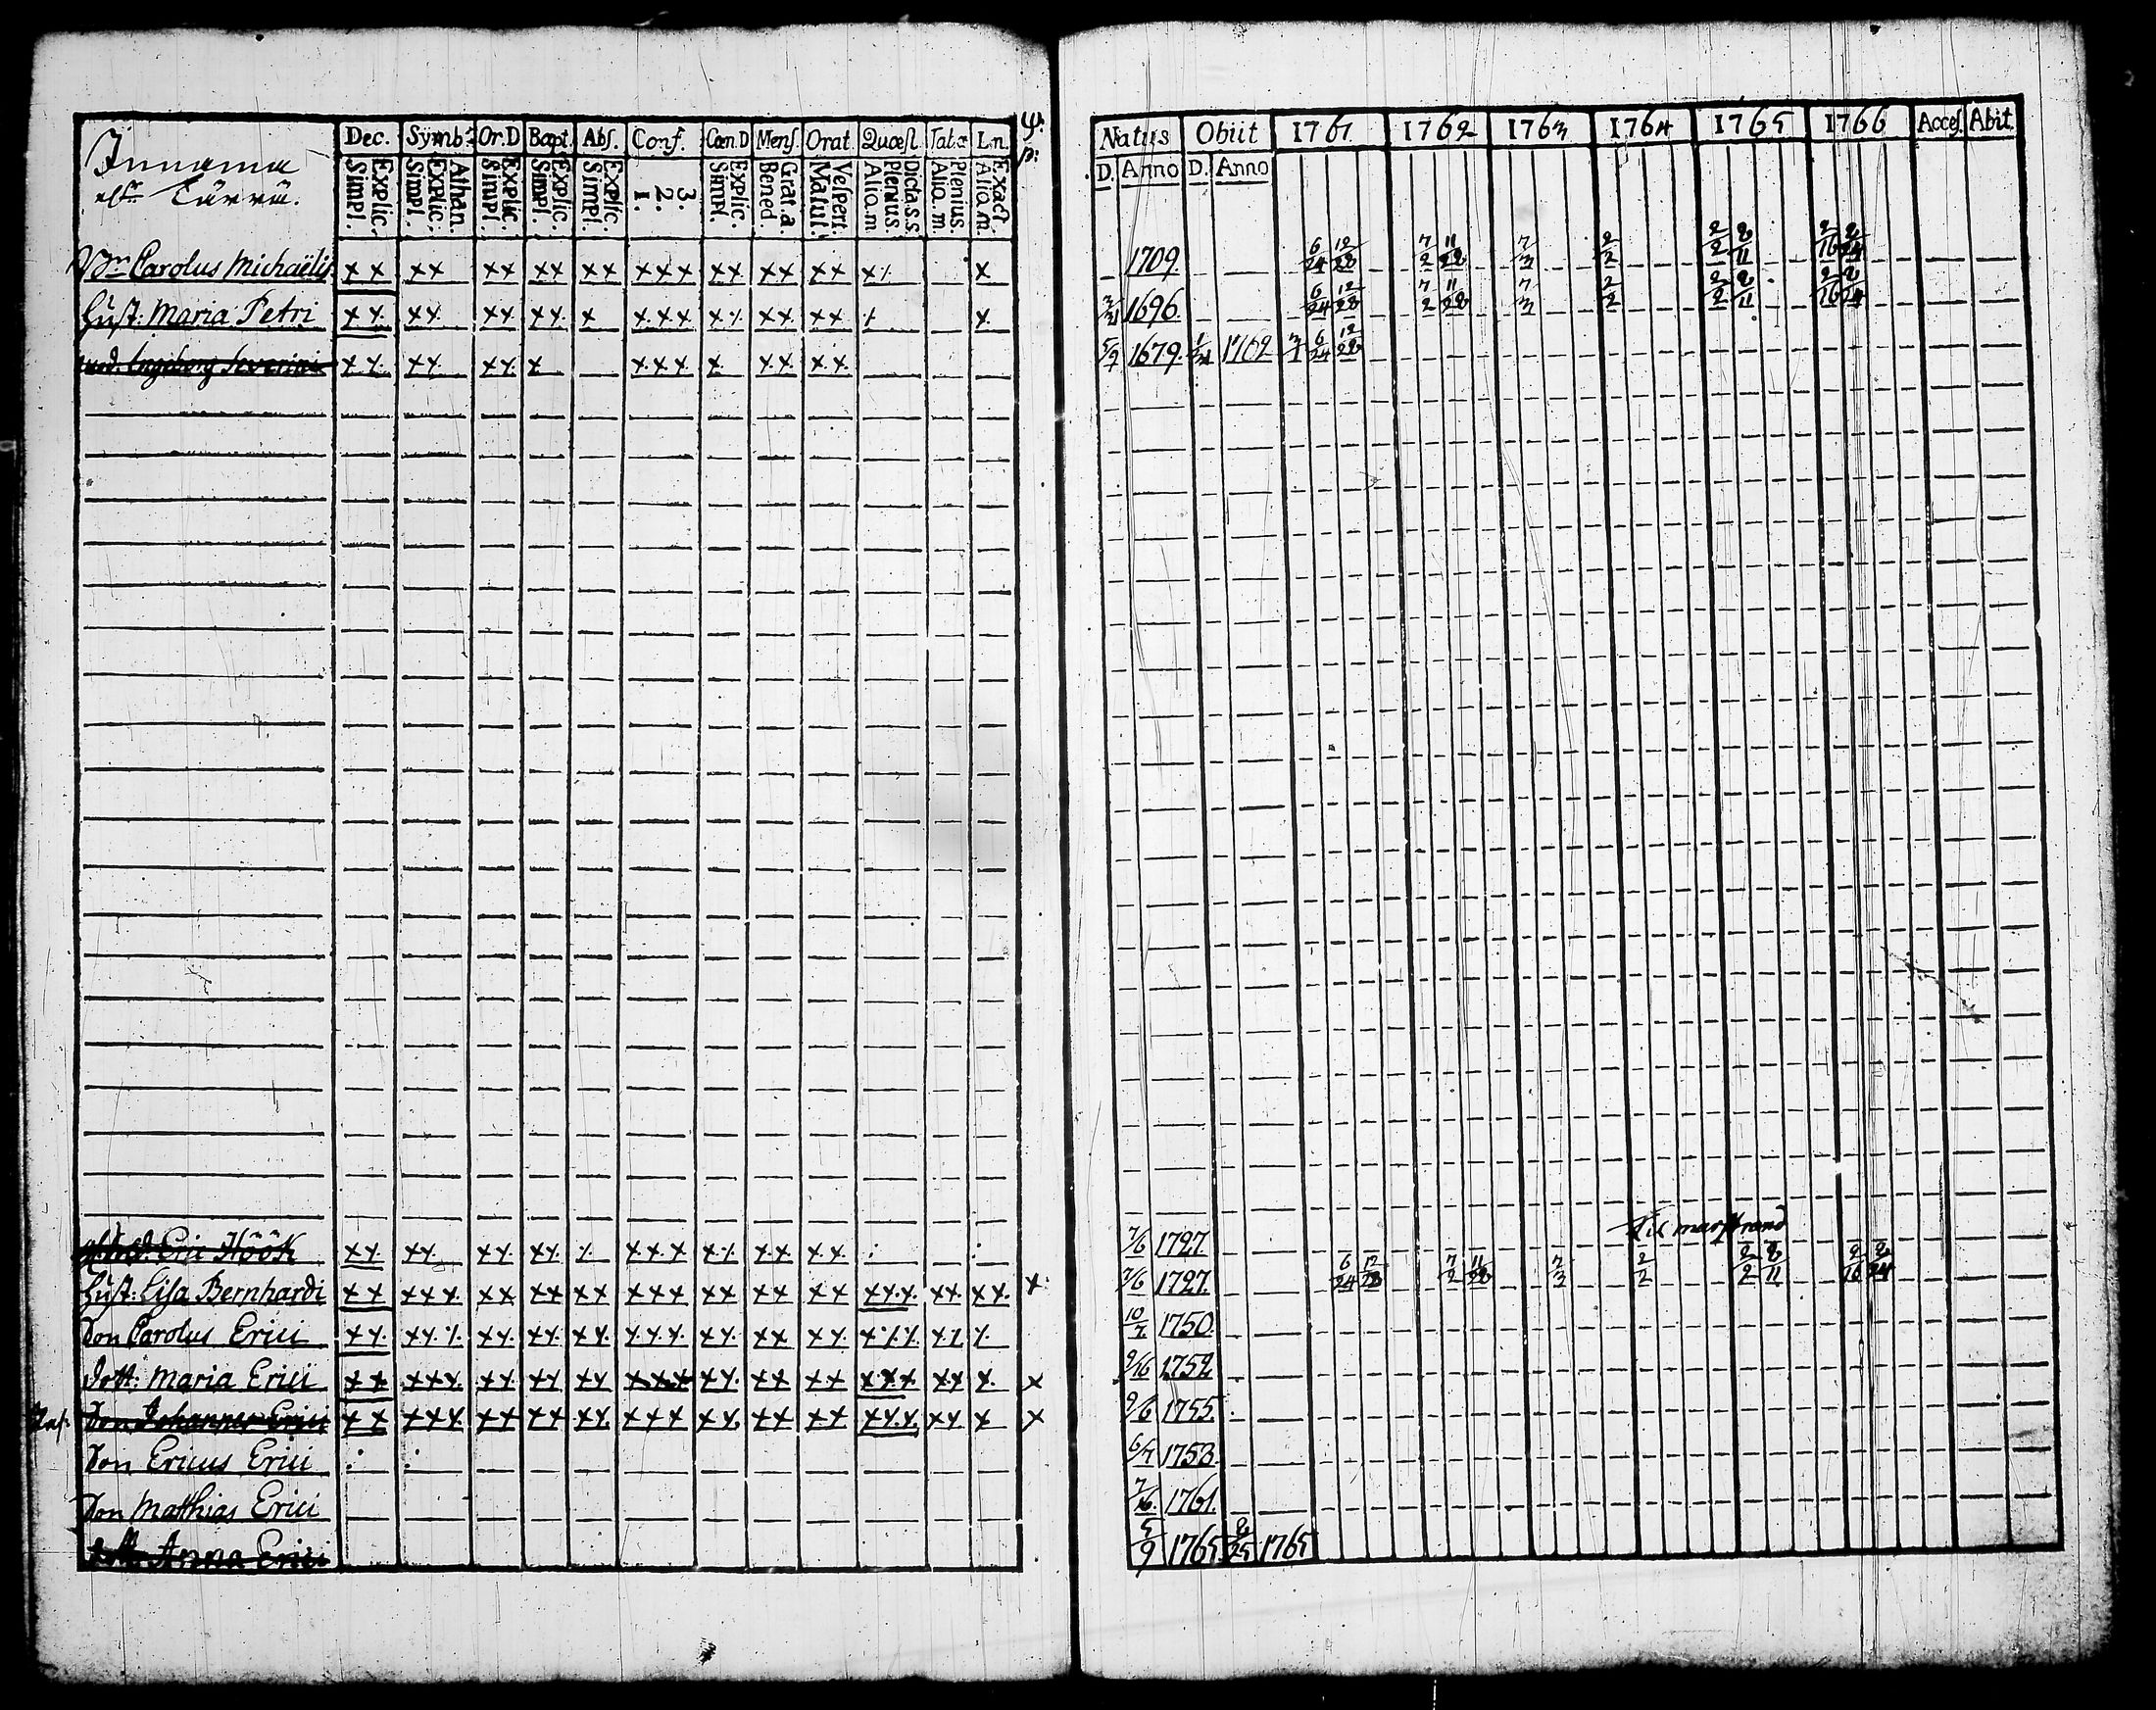 Dec. Symb. Or.D Bapt. Abs. Conf. Cœn.D Mens. Orat. Quæst. Tabæ In. Natus Obiit 1761 1762 1763 1764 1765 1766 Acces. Abit.
Explic. Simpl. Athan. Explic. Simpl. Explic. Simpl. Explic. Simpl. Explic. Simpl. 3. 2. 1. Explic. Simpl. Grat. a. Bened. Vespert. Matut. Dicta s.s. Plenius Aliq.m Plenius Aliq.m. Exact. Aliq.m. D. Anno D. Anno
Carolus Michaëlis x x x x x x x x x x x x x x x x x x x x 1709. 6/24 12/28 7/2 11/28 7/3 2/2 2/2 8/11 2/16 8/24
Hust. Maria Petri 1696. 6/24 12/28 7/2 11/28 7/3 2/2 2/2 8/11 2/16 8/24
Ingeborg Severini 5/9 1679. 1762 6/24 12/28
Eric Höök 7/6 1727. Til marstrand
Hust. Lisa Bernhardi 7/6 1727. 6/24 12/28 7/2 11/28 7/3 2/2 2/2 8/11 2/16 8/24
Son Carolus Erici 1750.
Dott: Maria Erici 9/16 1752
Son Johannes Erici 9/6 1755.
Son Ericus Erici 1758.
Son Matthias Erici 7/16. 1761.
Dott. Anna Erici 5/9 1765. 8/25 1765